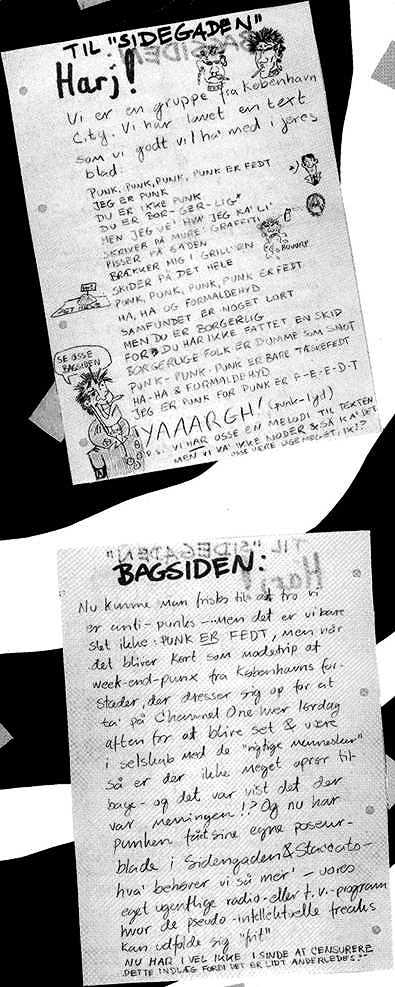 TIL "SIDEGADEN"
Harj!
Vi er en gruppe fra København
City. Vi har lavet en text
som vi godt vil ha' med i jeres
blad.
PUNK, PUNK, PUNK, PUNK ER FEDT
JEG ER PUNK
DU ER IKKE PUNK
DU ER BOR-GER-LIG*
MEN JEG VE' HVA' JEG KA' LI'
SKRIVER PÅ MURE: GRAFFITI
PISSER PÅ GADEN
BRÆKKER MIG I GRILL'EN
SKIDER PÅ DET HELE
PUNK, PUNK, PUNK, PUNK ER FEDT
HA, HA OG FORMALDEHYD
SAMFUNDET ER NOGET LORT
MEN DU ER BORGERLIG
FOR DU HAR IKKE FATTET EN SKID
BORGERLIGE FOLK ER DUMME SOM SNOT
PUNK-PUNK-PUNK ER BARE TÆSKEFEDT
HA-HA & FORMALDEHYD
JEG ER PUNK FOR PUNK ER F-E-E-D-T
YAAARGH! (punk-lyd)
P.S. VI HAR OSSE EN MELODI TIL TEXTEN
MEN VI KA' IKKE NODER & SÅ KA' DET
OSSE VÆRE LIGEMEGET, IK!?
SE OSSE
BAGSIDEN
DET HELE
BAGSIDEN:
Nu kunne man fristes til at tro vi
er anti-punks - men det er vi bare
slet ikke: PUNK ER FEDT, men når
det bliver kørt som modetrip af
week-end-punx fra Københavns for-
stæder, der dresser sig op for at
ta' på Channel One hver lørdag
aften for at blive set & være
i selskab med de "rigtige mennesker"
så er der ikke meget oprør til-
bage - og det var vist det der
var meningen!? Og nu har
punken fået sine egne poseur-
blade i Sidengaden & Staccato -
hva' behøver vi så mer' - vores
eget ugentlige radio- eller t.v.-program
hvor de pseudo-intellektuelle freaks
kan udfolde sig "frit"
NU HAR I VEL IKKE I SINDE AT CENSURERE
DETTE INDLÆG FORDI DET ER LIDT ANDERLEDES?